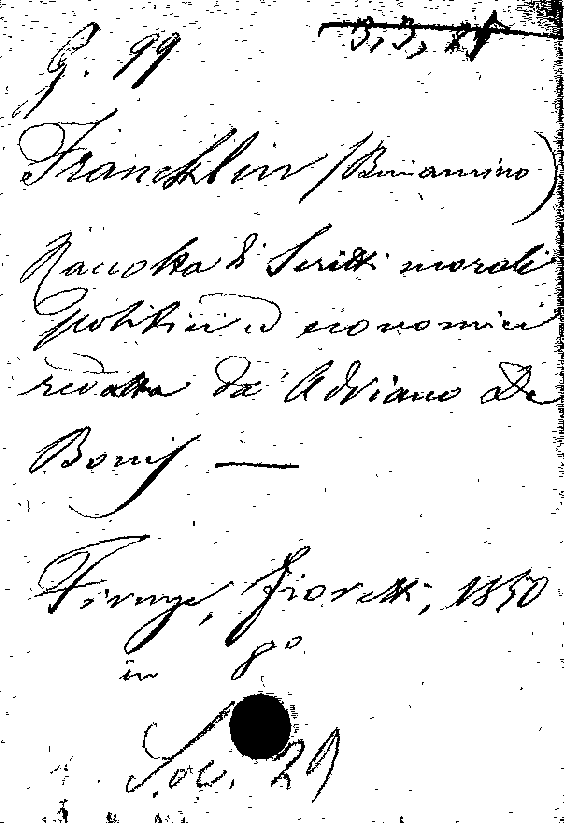 G. 99 3, 3, 27
Francklin (Beniamino)
Raccolta di Scritti morali
politici ed economici
redatta da Adriano De
Bonis —
Firenze, Fioretti, 1850
in 8°
Soc. 29